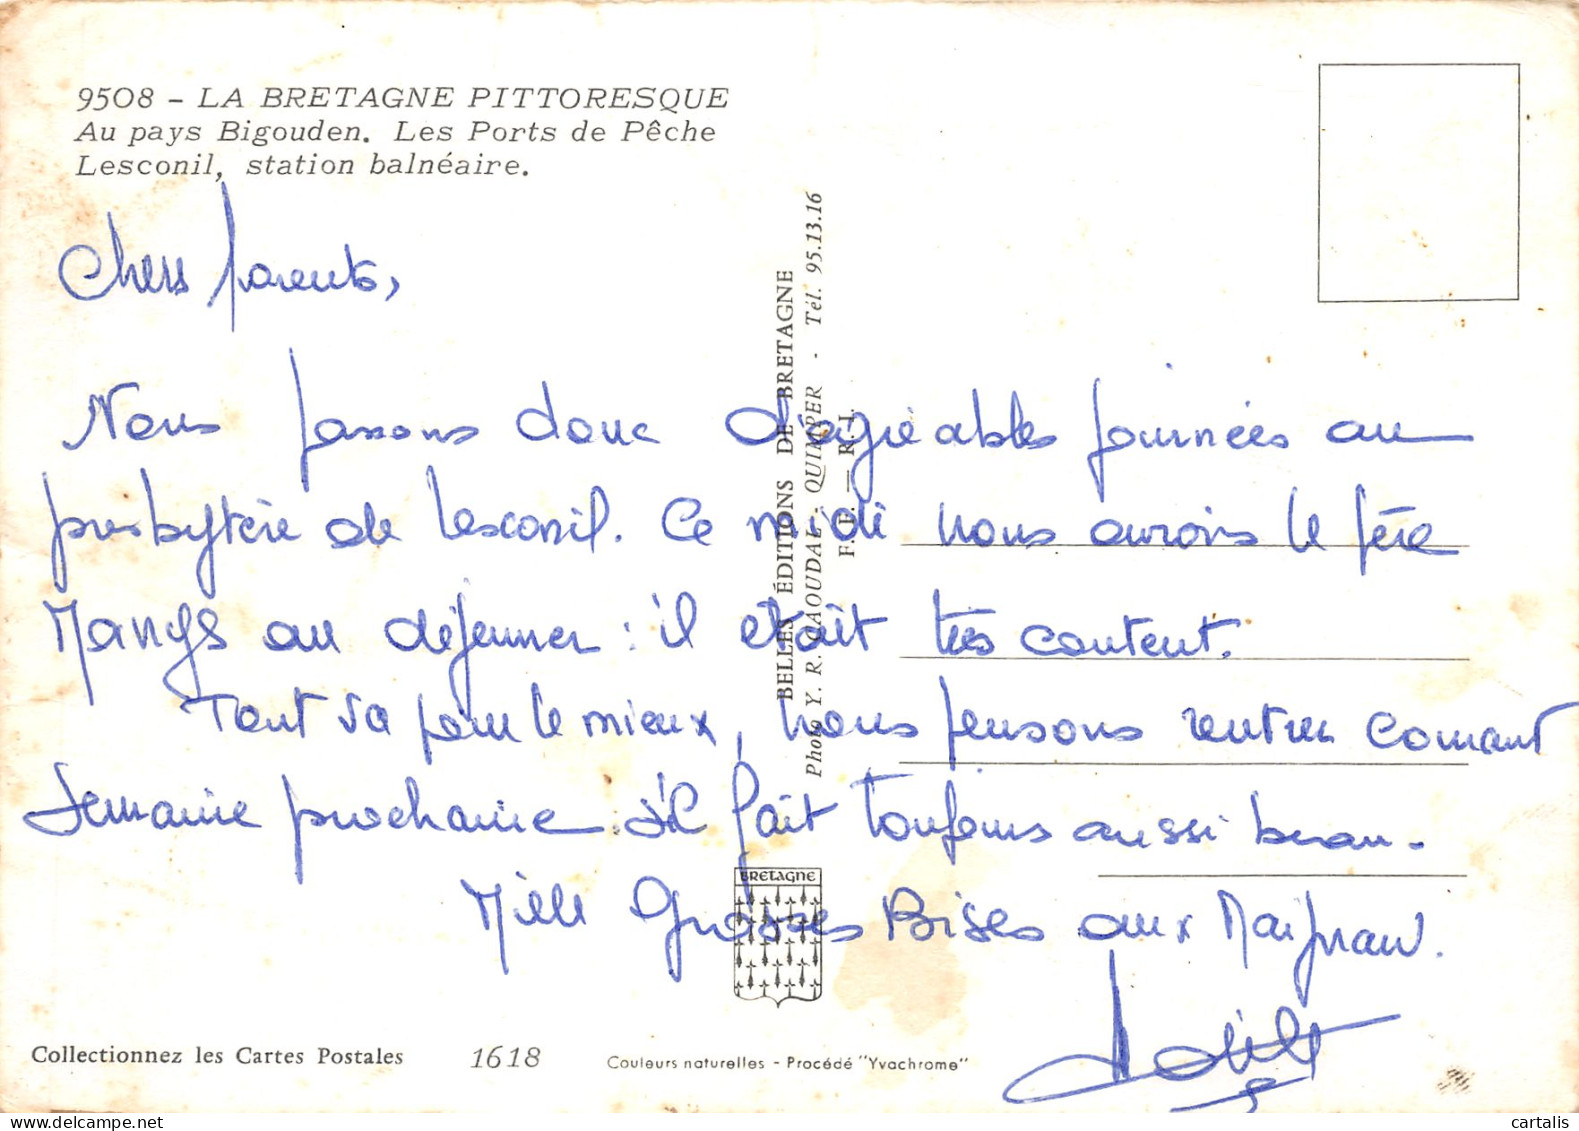 9508 - LA BRETAGNE PITTORESQUE
Au pays Bigouden. Les Ports de Pêche
Lesconil, station balnéaire.
Chers parents,
Nous passons donc d'agréables journées au
presbytère de Lesconil. Ce midi nous avions le père
au déjeuner : il était très content.
Tout va pour le mieux, nous pensons rentrer courant
semaine prochaine. Il fait toujours aussi beau.
Mille Grosses Bises aux
BELLES ÉDITIONS DE BRETAGNE
Photo Y. R. CAOUDAL - QUIMPER - Tél. 95.13.16
BRETAGNE
Collectionnez les Cartes Postales 1618 Couleurs naturelles - Procédé "Yvachrome"
cartalis